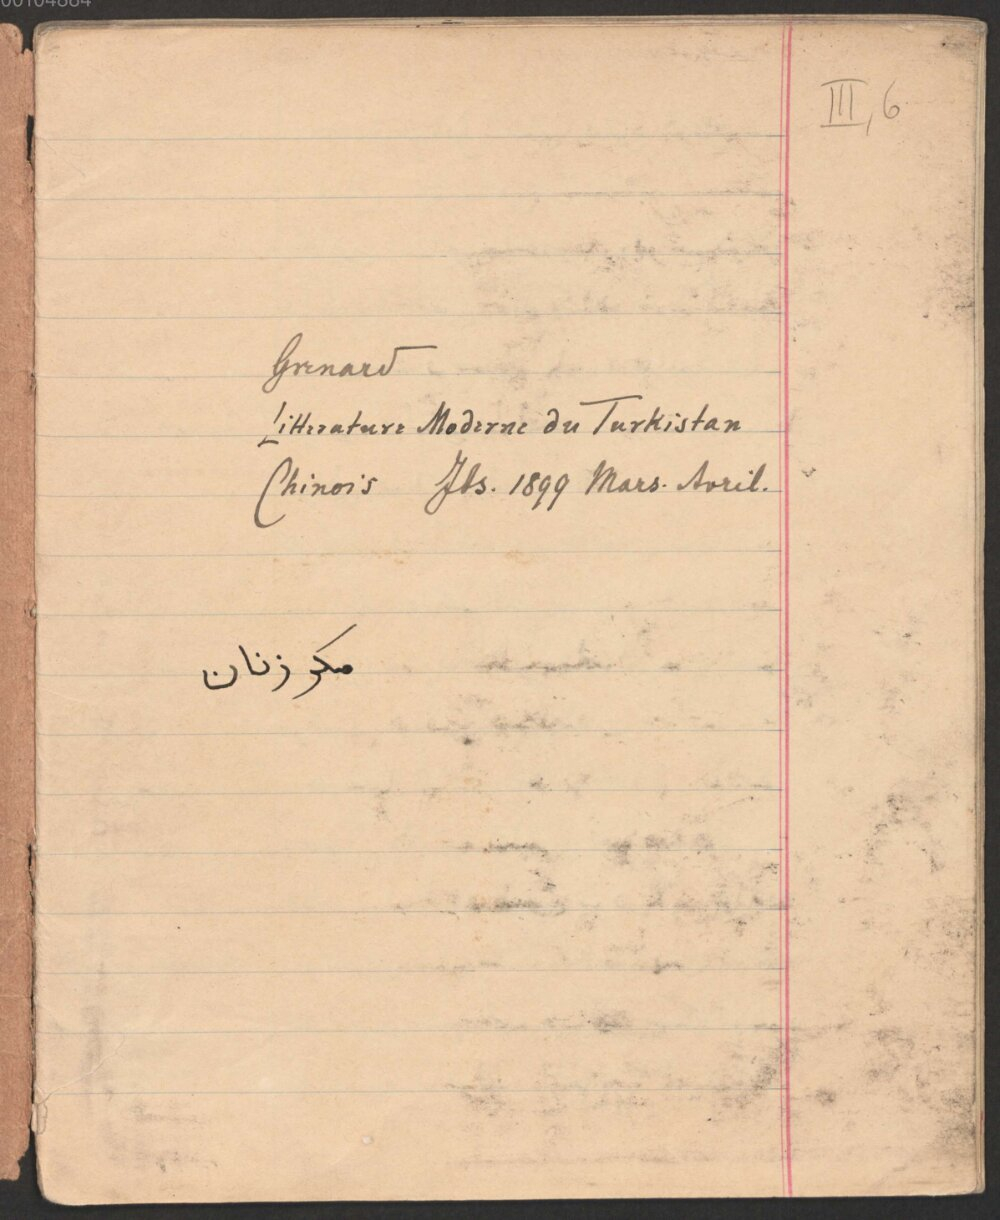 III, 6
Grenard
Litterature Moderne du Turkistan
Chinois Jbs. 1899 Mars. Avril.
مكر زنان